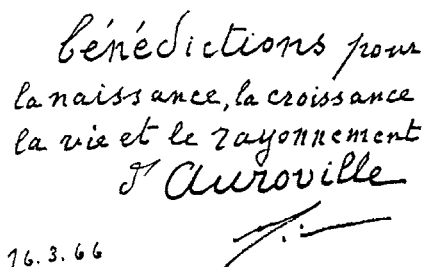 bénédictions pour
la naissance, la croissance
la vie et le rayonnement
d'Auroville
16.3.66